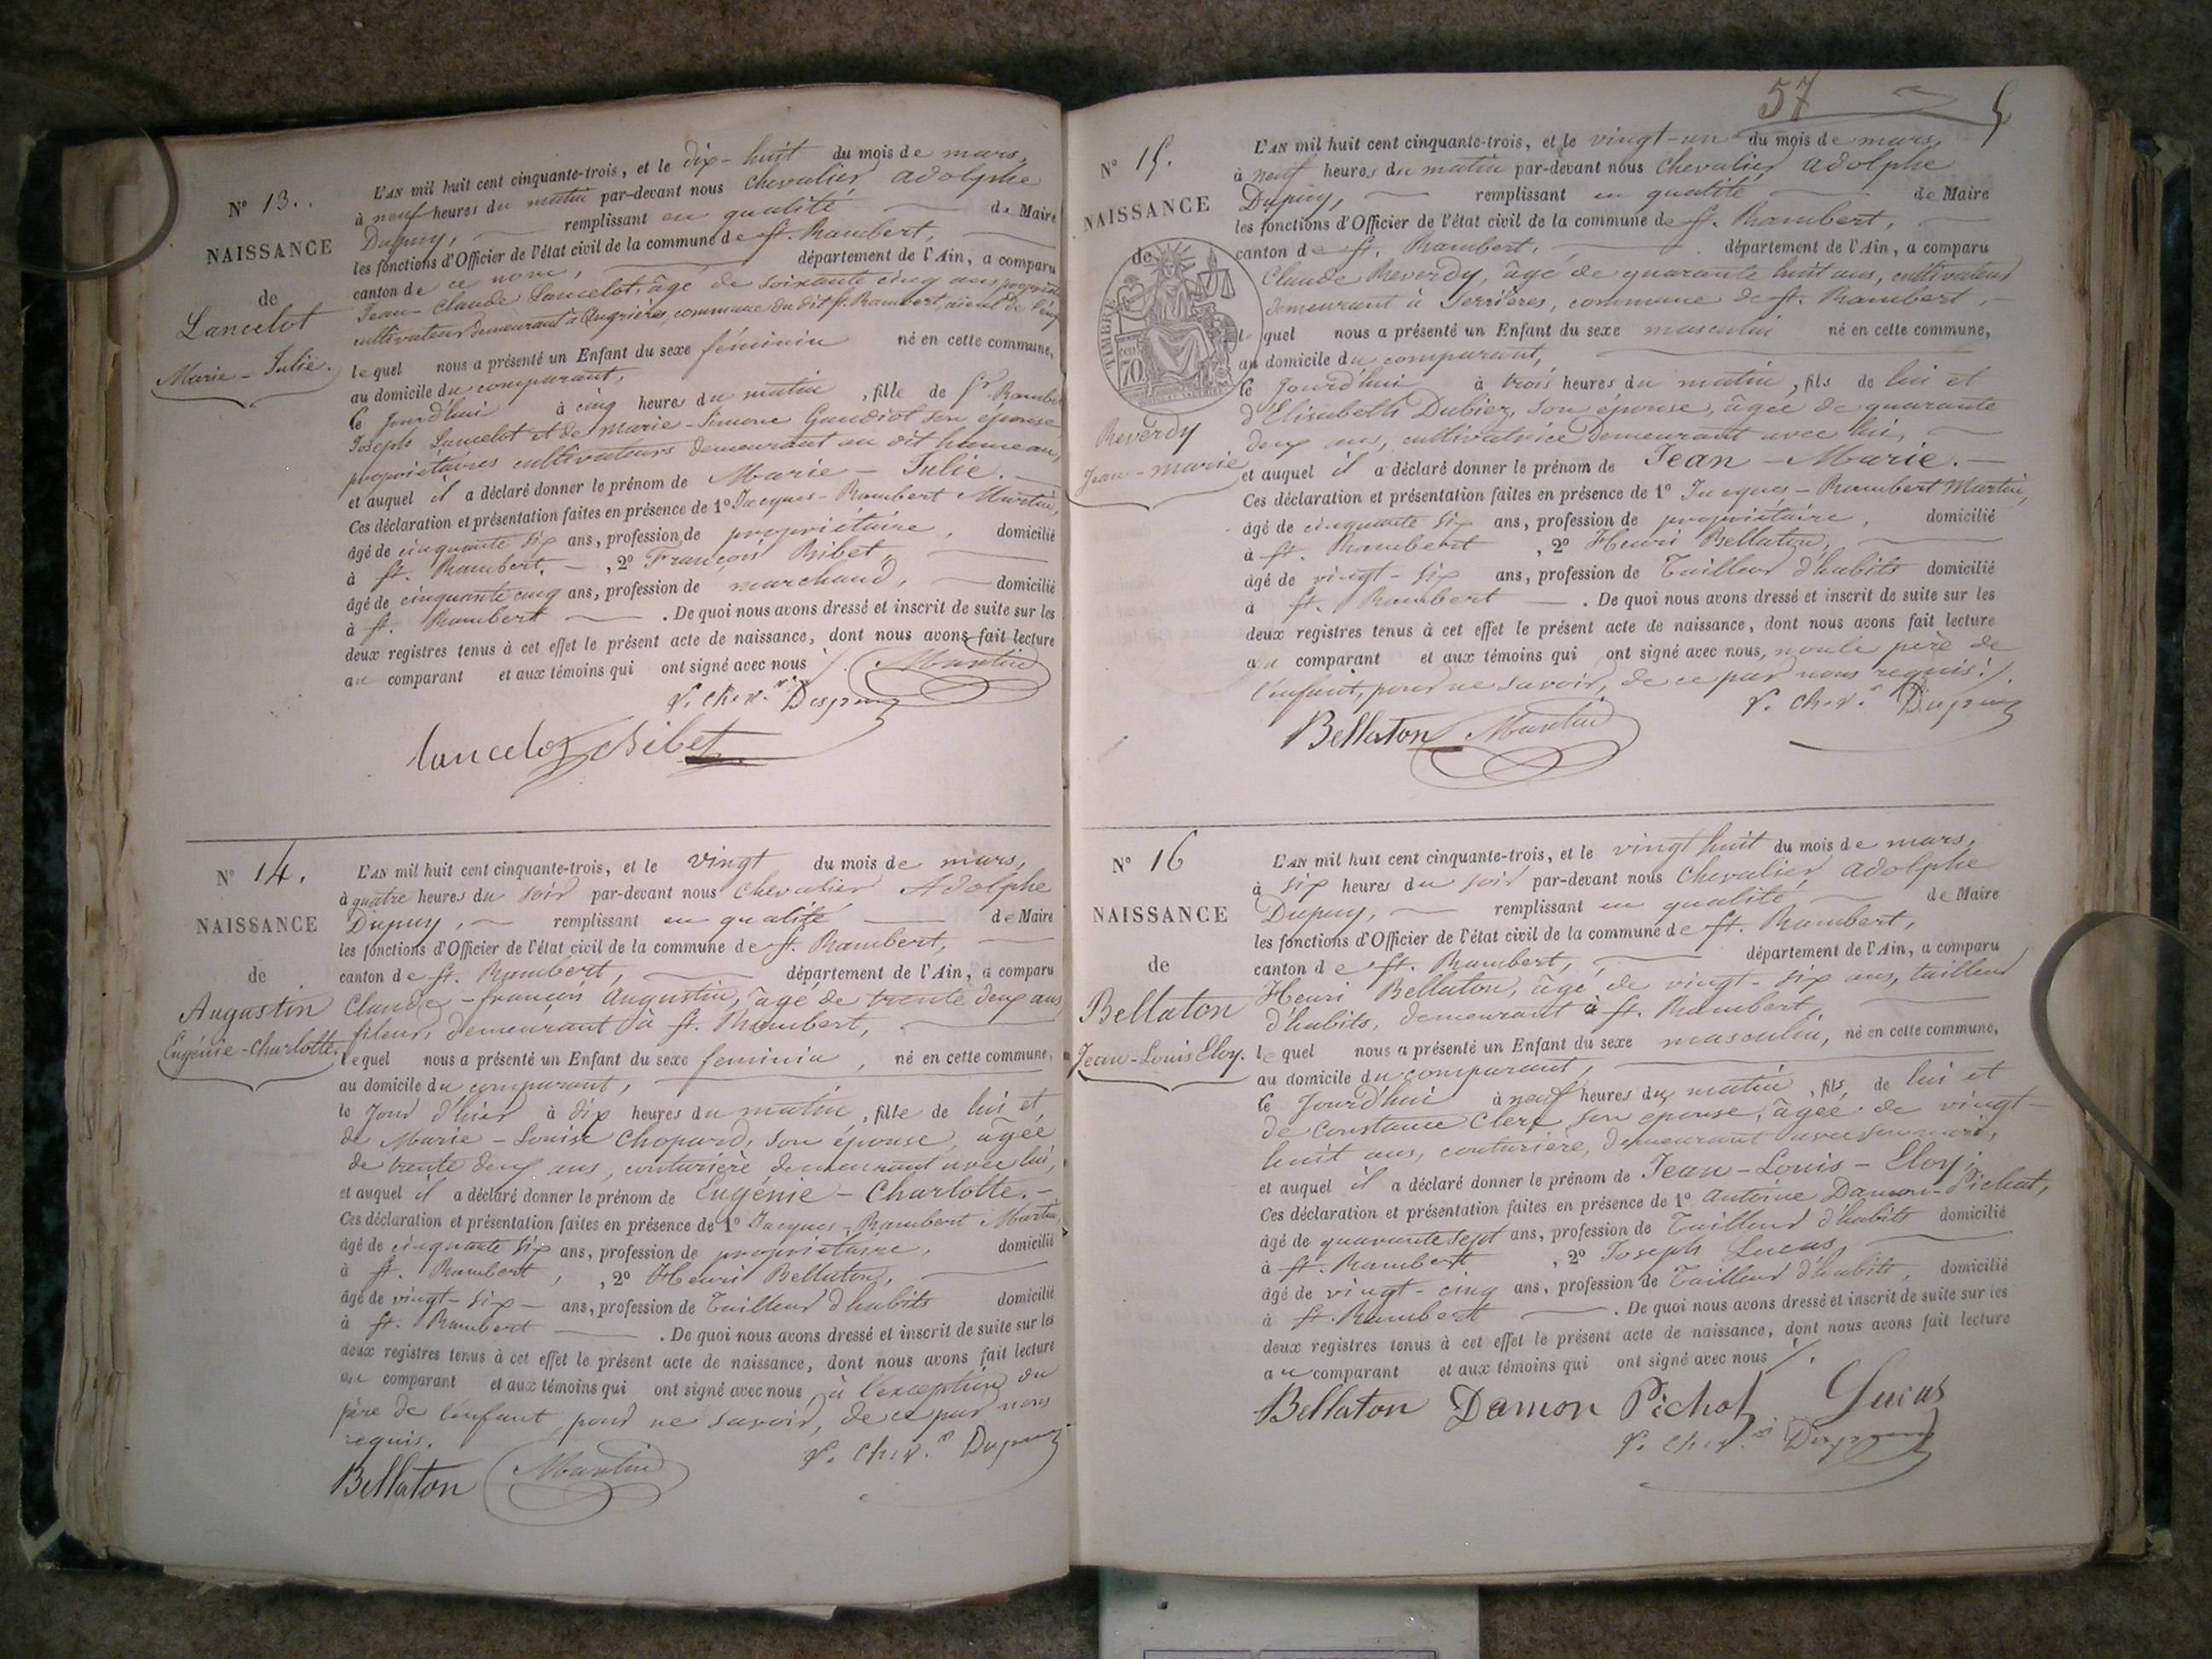 N° 13.
NAISSANCE
de
Lancelot
Marie-Julie.
L'AN mil huit cent cinquante-trois, et le dix-huit du mois de mars,
à neuf heures du matin par-devant nous Chevalier Adolphe
Dupuy, remplissant en qualité de Maire
les fonctions d'Officier de l'état civil de la commune de St. Rambert,
canton de ce nom, département de l'Ain, a comparu
Jean-Claude Lancelot, âgé de soixante cinq ans
cultivateur demeurant à commune du dit St. Rambert, aieul de
lequel nous a présenté un Enfant du sexe féminin né en cette commune,
au domicile du comparant,
le jourd'hui à cinq heures du matin, fille de Rambert
Joseph Lancelot et de Marie-Simone Gaudiot son épouse,
propriétaires cultivateurs demeurant au dit hameau,
et auquel il a déclaré donner le prénom de Marie-Julie.
Ces déclaration et présentation faites en présence de 1° Jacques-Rambert Martin,
âgé de cinquante six ans, profession de propriétaire, domicilié
à St. Rambert, 2° François Bibet,
âgé de cinquante cinq ans, profession de marchand, domicilié
à St. Rambert. De quoi nous avons dressé et inscrit de suite sur les
deux registres tenus à cet effet le présent acte de naissance, dont nous avons fait lecture
au comparant et aux témoins qui ont signé avec nous
Martin
Dupuy
Lancelot Bibet
N° 14.
NAISSANCE
de
Augustin
Eugénie-Charlotte.
L'AN mil huit cent cinquante-trois, et le vingt du mois de mars,
à quatre heures du soir par-devant nous Chevalier Adolphe
Dupuy, remplissant en qualité de Maire
les fonctions d'Officier de l'état civil de la commune de St. Rambert,
canton de St. Rambert, département de l'Ain, a comparu
Claude-françois Augustin, âgé de trente deux ans,
fileur, demeurant à St. Rambert,
lequel nous a présenté un Enfant du sexe feminin, né en cette commune,
au domicile du comparant,
le jour d'hier à dix heures du matin, fille de lui et
de Marie-Louise Chopard, son épouse, âgée
de trente deux ans, couturière demeurant avec lui,
et auquel il a déclaré donner le prénom de Eugénie-Charlotte.
Ces déclaration et présentation faites en présence de 1° Jacques-Rambert Martin,
âgé de cinquante six ans, profession de propriétaire, domicilié
à St. Rambert, 2° Henri Bellaton,
âgé de vingt-six ans, profession de Tailleur d'habits domicilié
à St. Rambert. De quoi nous avons dressé et inscrit de suite sur les
deux registres tenus à cet effet le présent acte de naissance, dont nous avons fait lecture
au comparant et aux témoins qui ont signé avec nous à l'exception du
père de l'enfant, pour ne savoir, de ce par nous
requis.
Dupuy
Bellaton Martin
57
N° 15.
NAISSANCE
de
TIMBRE
70
Reverdy
Jean-marie
L'AN mil huit cent cinquante-trois, et le vingt-un du mois de mars,
à neuf heures du matin par-devant nous Chevalier Adolphe
Dupuy, remplissant en qualité de Maire
les fonctions d'Officier de l'état civil de la commune de St. Rambert,
canton de St. Rambert, département de l'Ain, a comparu
Claude Reverdy, âgé de quarante huit ans, cultivateur
demeurant à Serrières, commune de St. Rambert,
lequel nous a présenté un Enfant du sexe masculin né en cette commune,
au domicile du comparant,
le jourd'hui à trois heures du matin, fils de lui et
d'Elisabeth Dubiez, son épouse, âgée de quarante
deux ans, cultivatrice demeurant avec lui,
et auquel il a déclaré donner le prénom de Jean-Marie.
Ces déclaration et présentation faites en présence de 1° Jacques-Rambert Martin,
âgé de cinquante six ans, profession de propriétaire, domicilié
à St. Rambert, 2° Henri Bellaton,
âgé de vingt-six ans, profession de Tailleur d'habits domicilié
à St. Rambert. De quoi nous avons dressé et inscrit de suite sur les
deux registres tenus à cet effet le présent acte de naissance, dont nous avons fait lecture
au comparant et aux témoins qui ont signé avec nous, non le père de
l'enfant, pour ne savoir, de ce par nous requis.
Dupuy
Bellaton Martin
N° 16
NAISSANCE
de
Bellaton
Jean-Louis Eloy.
L'AN mil huit cent cinquante-trois, et le vingt huit du mois de mars,
à six heures du soir par-devant nous Chevalier Adolphe
Dupuy, remplissant en qualité de Maire
les fonctions d'Officier de l'état civil de la commune de St. Rambert,
canton de St. Rambert, département de l'Ain, a comparu
Henri Bellaton, âgé de vingt-six ans, tailleur
d'habits, demeurant à St. Rambert,
lequel nous a présenté un Enfant du sexe masculin, né en cette commune,
au domicile du comparant,
le jourd'hui à neuf heures du matin, fils de lui et
de Constance Clerc son épouse, âgée de vingt-
huit ans, couturière, demeurant avec son mari,
et auquel il a déclaré donner le prénom de Jean-Louis-Eloy;
Ces déclaration et présentation faites en présence de 1° Antoine Damon-Pichat,
âgé de quarante sept ans, profession de Tailleur d'habits domicilié
à St. Rambert, 2° Joseph Lucas,
âgé de vingt-cinq ans, profession de Tailleur d'habits, domicilié
à St. Rambert. De quoi nous avons dressé et inscrit de suite sur les
deux registres tenus à cet effet le présent acte de naissance, dont nous avons fait lecture
au comparant et aux témoins qui ont signé avec nous
Bellaton Damon Pichot Lucas
Dupuy